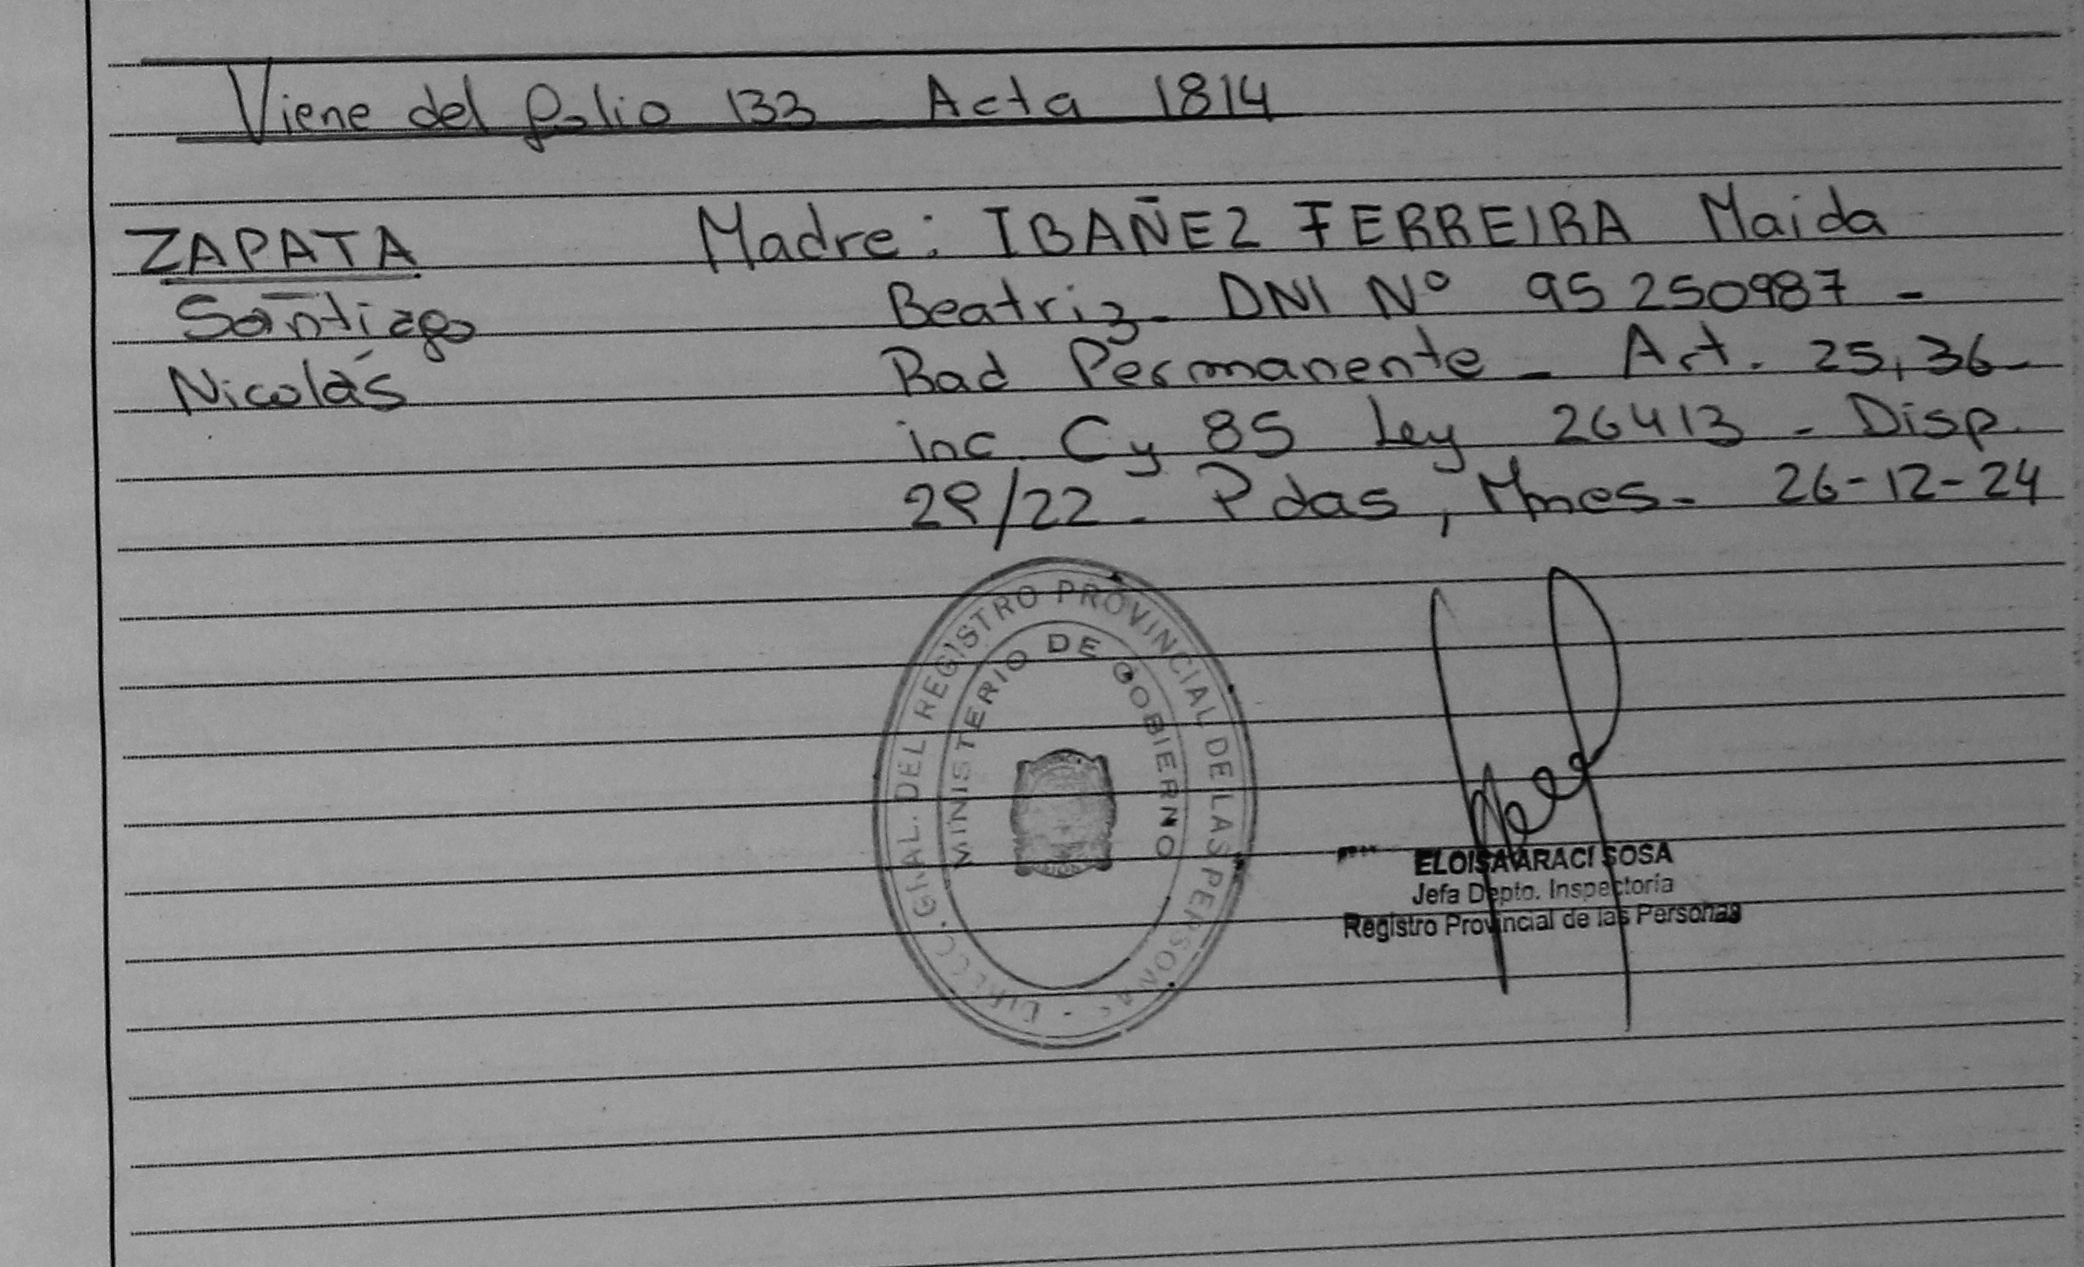 Viene del folio 133 Acta 1814
ZAPATA
Santiago
Nicolás
Madre: IBAÑEZ FERREIRA Maida
Beatriz - DNI Nº 95 250987 -
Rad Permanente - Art. 25, 36 -
inc. C y 85 Ley 26413 - Disp.
29/22 - Pdas, Mnes - 26-12-24
GRAL. DEL REGISTRO PROVINCIAL DE LAS PERSONAS
MINISTERIO DE GOBIERNO
ELOISA ARACI SOSA
Jefa Depto. Inspectoría
Registro Provincial de las Personas